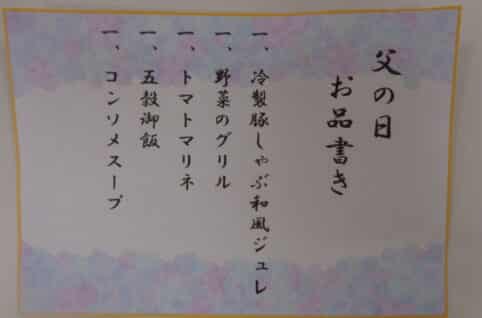 父の日
お品書き
一、冷製豚しゃぶ和風ジュレ
一、野菜のグリル
一、トマトマリネ
一、五穀御飯
一、コンソメスープ